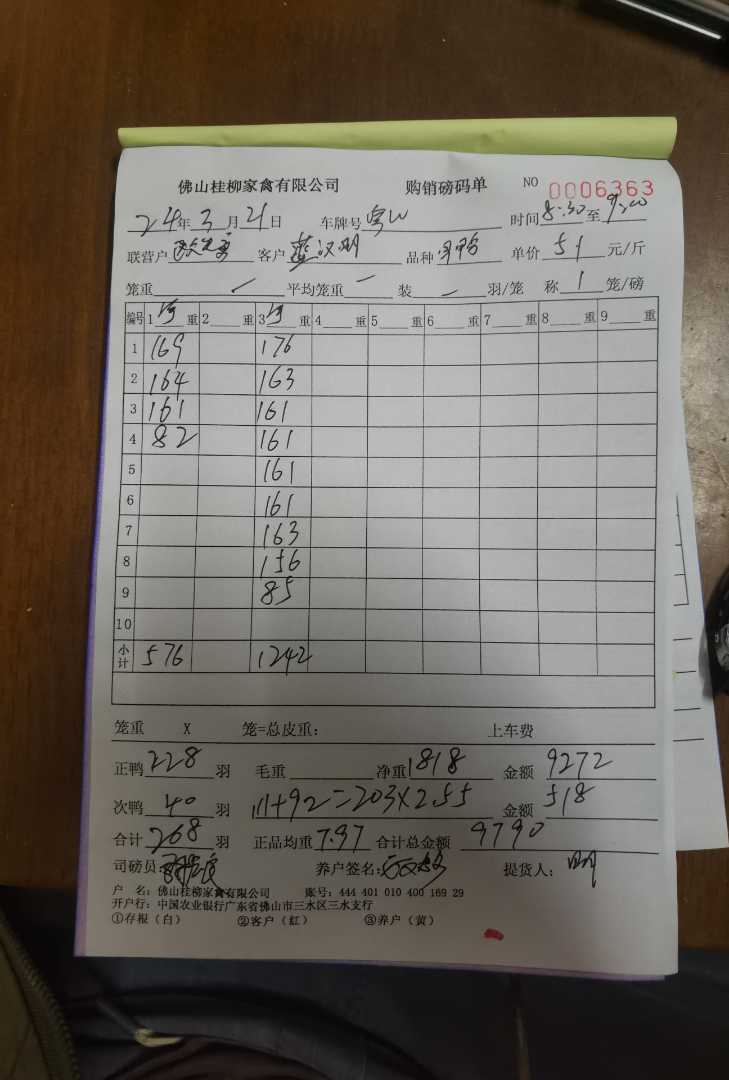 佛山桂柳家禽有限公司 购销磅码单 NO 0006363
24年3月21日 车牌号粤W 时间8:30至9:00
联营户 客户 汉明 品种 单价51元/斤
笼重 平均笼重 装 羽/笼 称1笼/磅
编号 1 重 2 重 3 重 4 重 5 重 6 重 7 重 8 重 9 重
1 169 176
2 164 163
3 161 161
4 82 161
5 161
6 161
7 163
8 156
9 85
10
小计 576 1242
笼重 X 笼=总皮重: 上车费
正鸭228羽 毛重 净重1818 金额9272
次鸭40羽 111+92=203×2.55 金额518
合计268羽 正品均重7.97 合计总金额9790
司磅员: 养户签名: 提货人: 明
户 名: 佛山桂柳家禽有限公司 账号: 444 401 010 400 169 29
开户行: 中国农业银行广东省佛山市三水区三水支行
①存根(白) ②客户(红) ③养户(黄)